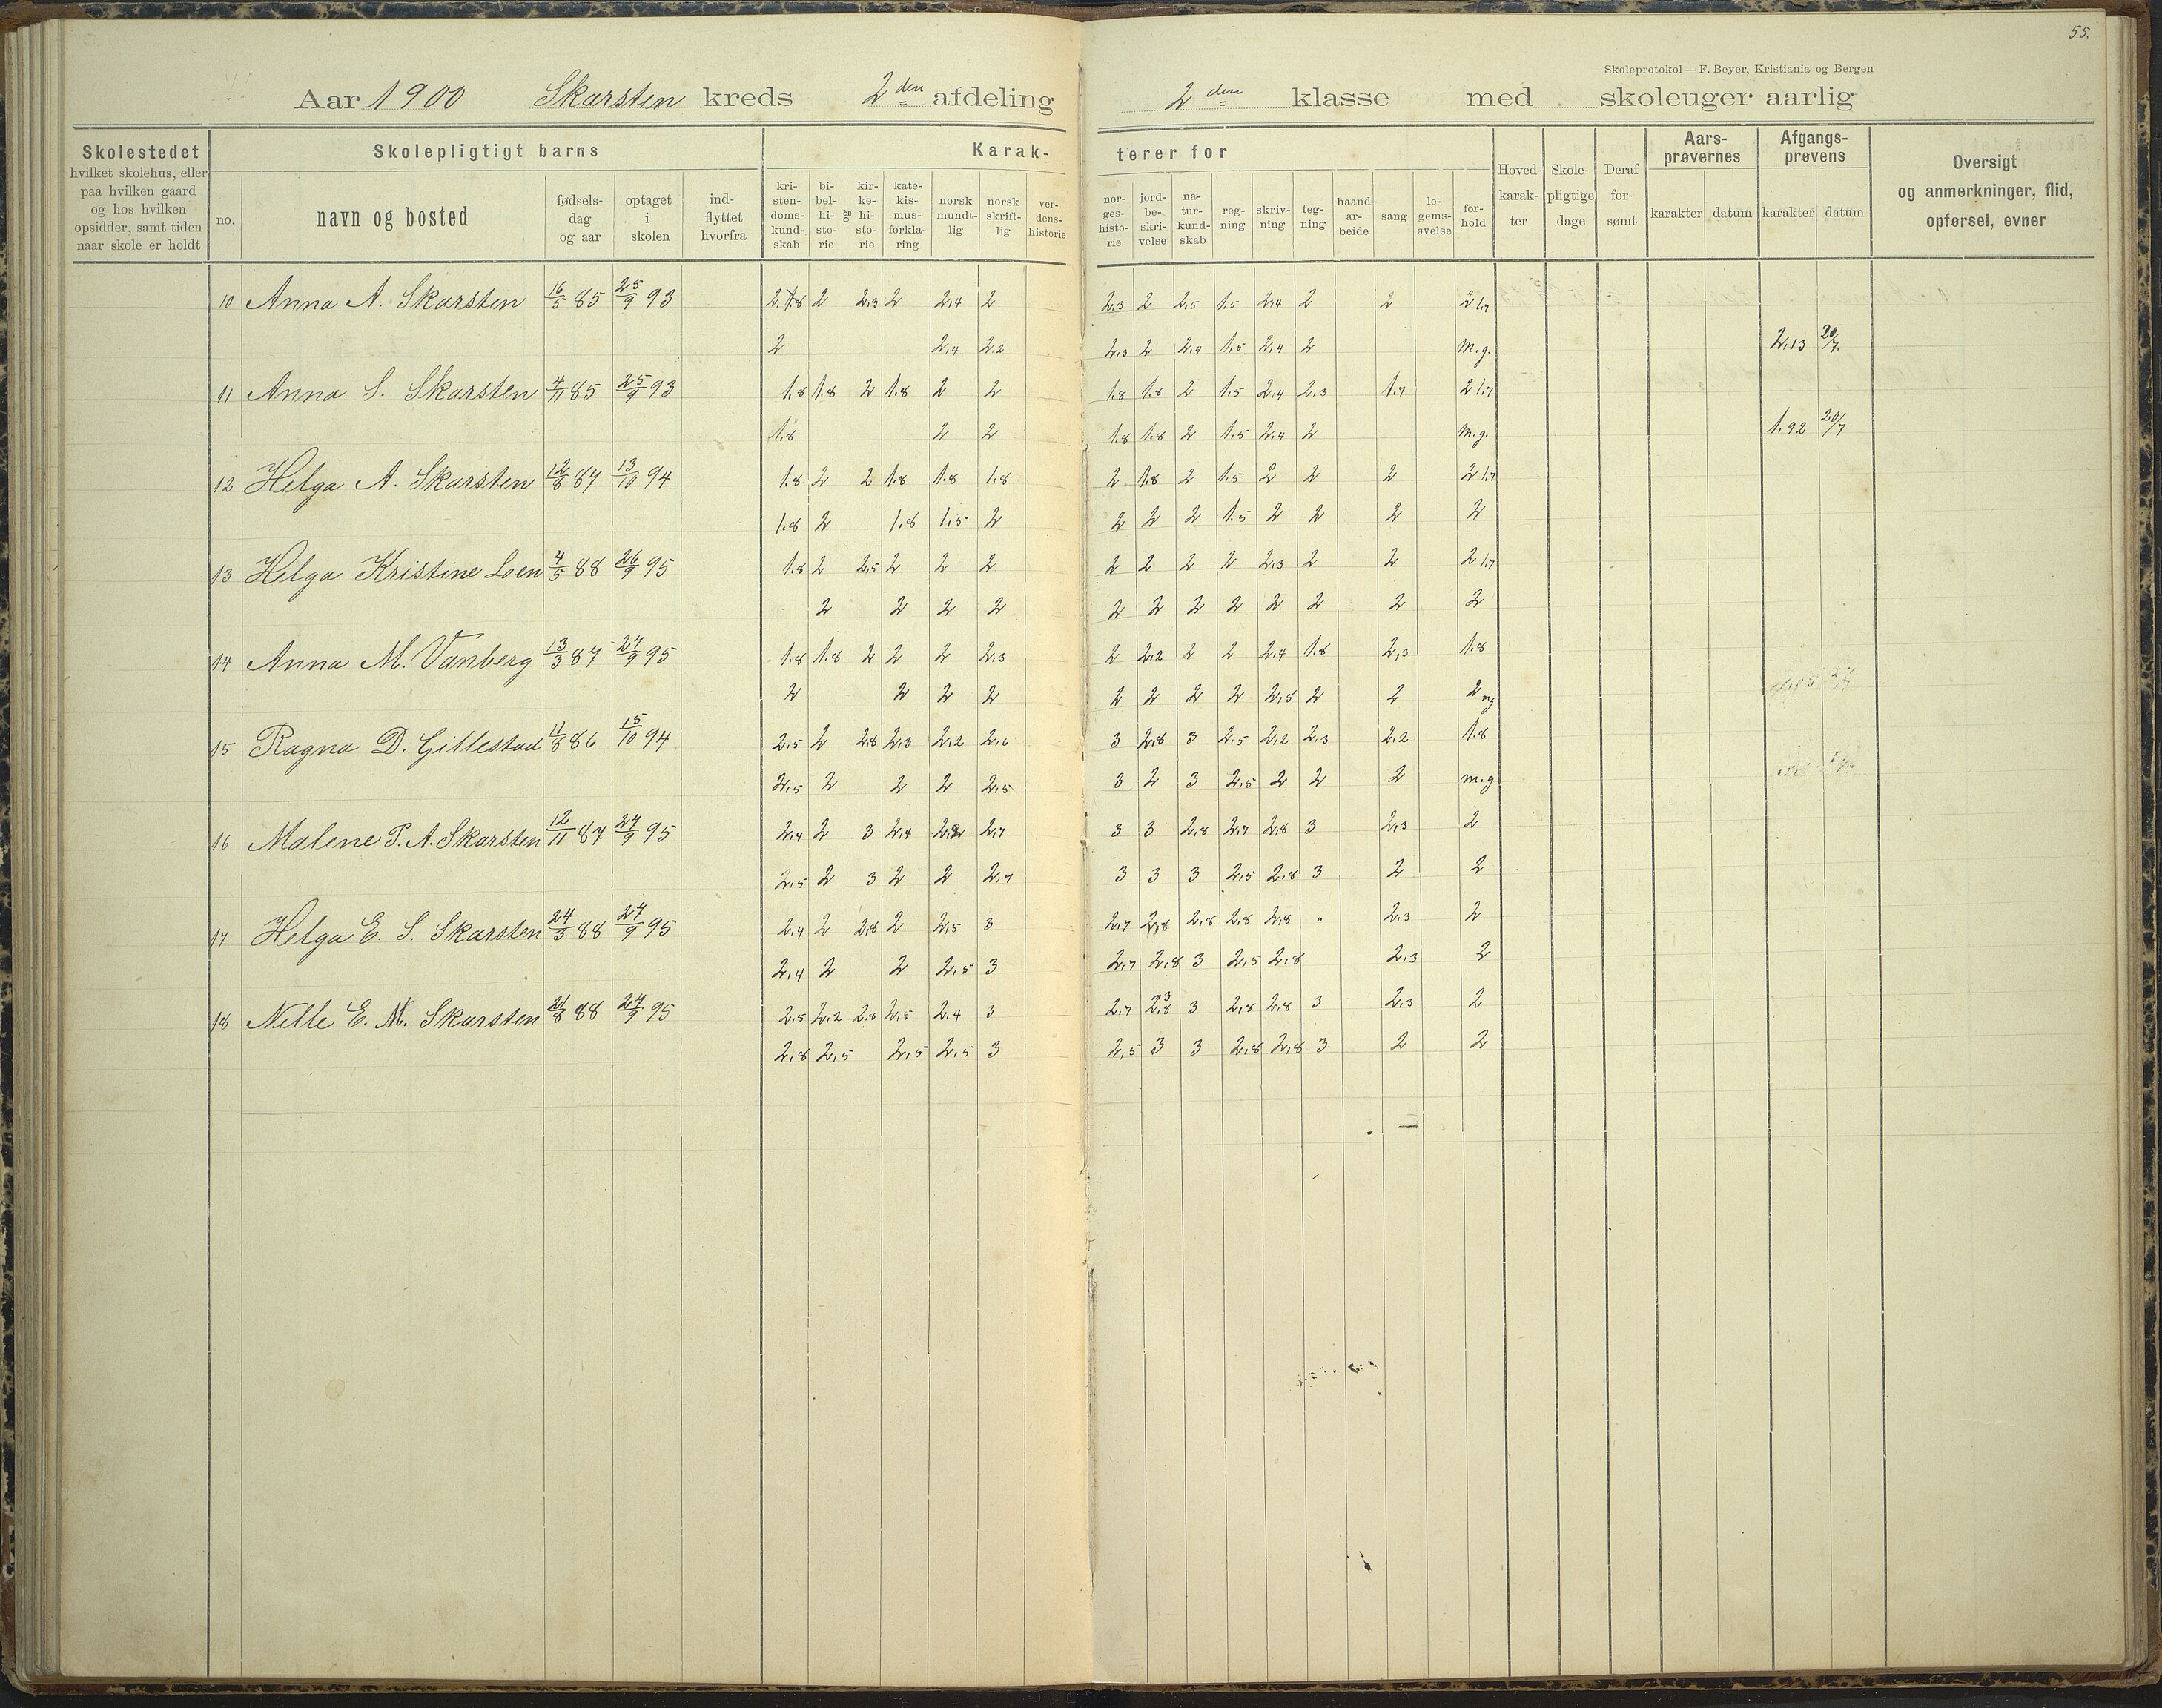 55.
Skoleprotokol — F. Beyer, Kristiania og Bergen
Aar 1900 Skarsten kreds 2den afdeling 2den klasse med skoleuger aarlig
Skolestedet hvilket skolehus, eller paa hvilken gaard og hos hvilken opsidder, samt tiden naar skole er holdt
Skolepligtigt barns
no. navn og bosted fødsels-dag og aar optaget i skolen ind-flyttet hvorfra
Karak-terer for
kri-sten-doms-kund-skab bi-bel-hi-sto-rie og kir-ke-hi-sto-rie kate-kis-mus-forkla-ring norsk mundt-lig norsk skrift-lig ver-dens-historie
nor-ges-histo-rie jord-be-skri-velse na-tur-kund-skab reg-ning skriv-ning teg-ning haand ar-beide sang le-gems-øvelse for-hold
Hoved-karak-ter Skole-pligtige dage Deraf for-sømt
Aars-prøvernes karakter datum
Afgangs-prøvens karakter datum
Oversigt og anmerkninger, flid, opførsel, evner
10 Anna A. Skarsten 16/5 85 25/9 93 2.1.8 2 2,3 2 2,4 2 2,3 2 2,5 1.5 2,4 2 2 2 1,7
2 2,4 2,2 2,3 2 2,4 1.5 2,4 2 m.g. 2,13 20/7
11 Anna S. Skarsten 4/11 85 25/9 93 1.8 1.8 2 1.8 2 2 1.8 1.8 2 1.5 2,4 2,3 1.7 2 1,7
1.8 2 2 1.8 1.8 2 1.5 2,4 2 m.g. 1,92 20/7
12 Helga A. Skarsten 12/8 87 13/10 94 1.8 2 2 1.8 1.8 1.8 2 1.8 2 1.5 2 2 2 2 1,7
1.8 2 1.8 1.5 2 2 2 2 1.5 2 2 2 2
13 Helga Kristine Loen 4/5 88 26/9 95 1.8 2 2,5 2 2 2 2 2 2 2 2,3 2 2 2 1,7
2 2 2 2 2 2 2 2 2 2 2 2
14 Anna M. Vanberg 13/3 87 27/9 95 1.8 1.8 2 2 2 2,3 2 2,2 2 2 2,4 1.8 2,3 1.8
2 2 2 2 2 2 2 2 2,5 2 2 2 mg
15 Ragna D. Gillestad 11/8 86 15/10 94 2,5 2 2,8 2,3 2,2 2,6 3 2,8 3 2,5 2,2 2,3 2,2 1.8
2,5 2 2 2 2,5 3 2 3 2,5 2 2 2 m.g
16 Malene P. A. Skarsten 12/11 87 27/9 95 2,4 2 3 2,4 2,7 3 3 2,8 2,7 2,8 3 2,3 2
2,5 2 3 2 2 2,7 3 3 3 2,5 2,8 3 2 2
17 Helga E. S. Skarsten 24/3 88 27/9 95 2,4 2 2,8 2 2,5 3 2,7 2,8 2,8 2,8 2,8 " 2,3 2
2,4 2 2 2,5 3 2,7 2,8 3 2,5 2,8 2,3 2
18 Nelle E. M. Skarsten 21/8 88 27/9 95 2,5 2,2 2,8 2,5 2,4 3 2,7 2,8 3 3 2,8 2,8 3 2,3 2
2,8 2,5 2,5 2,5 3 2,5 3 3 2,8 2,8 3 2 2